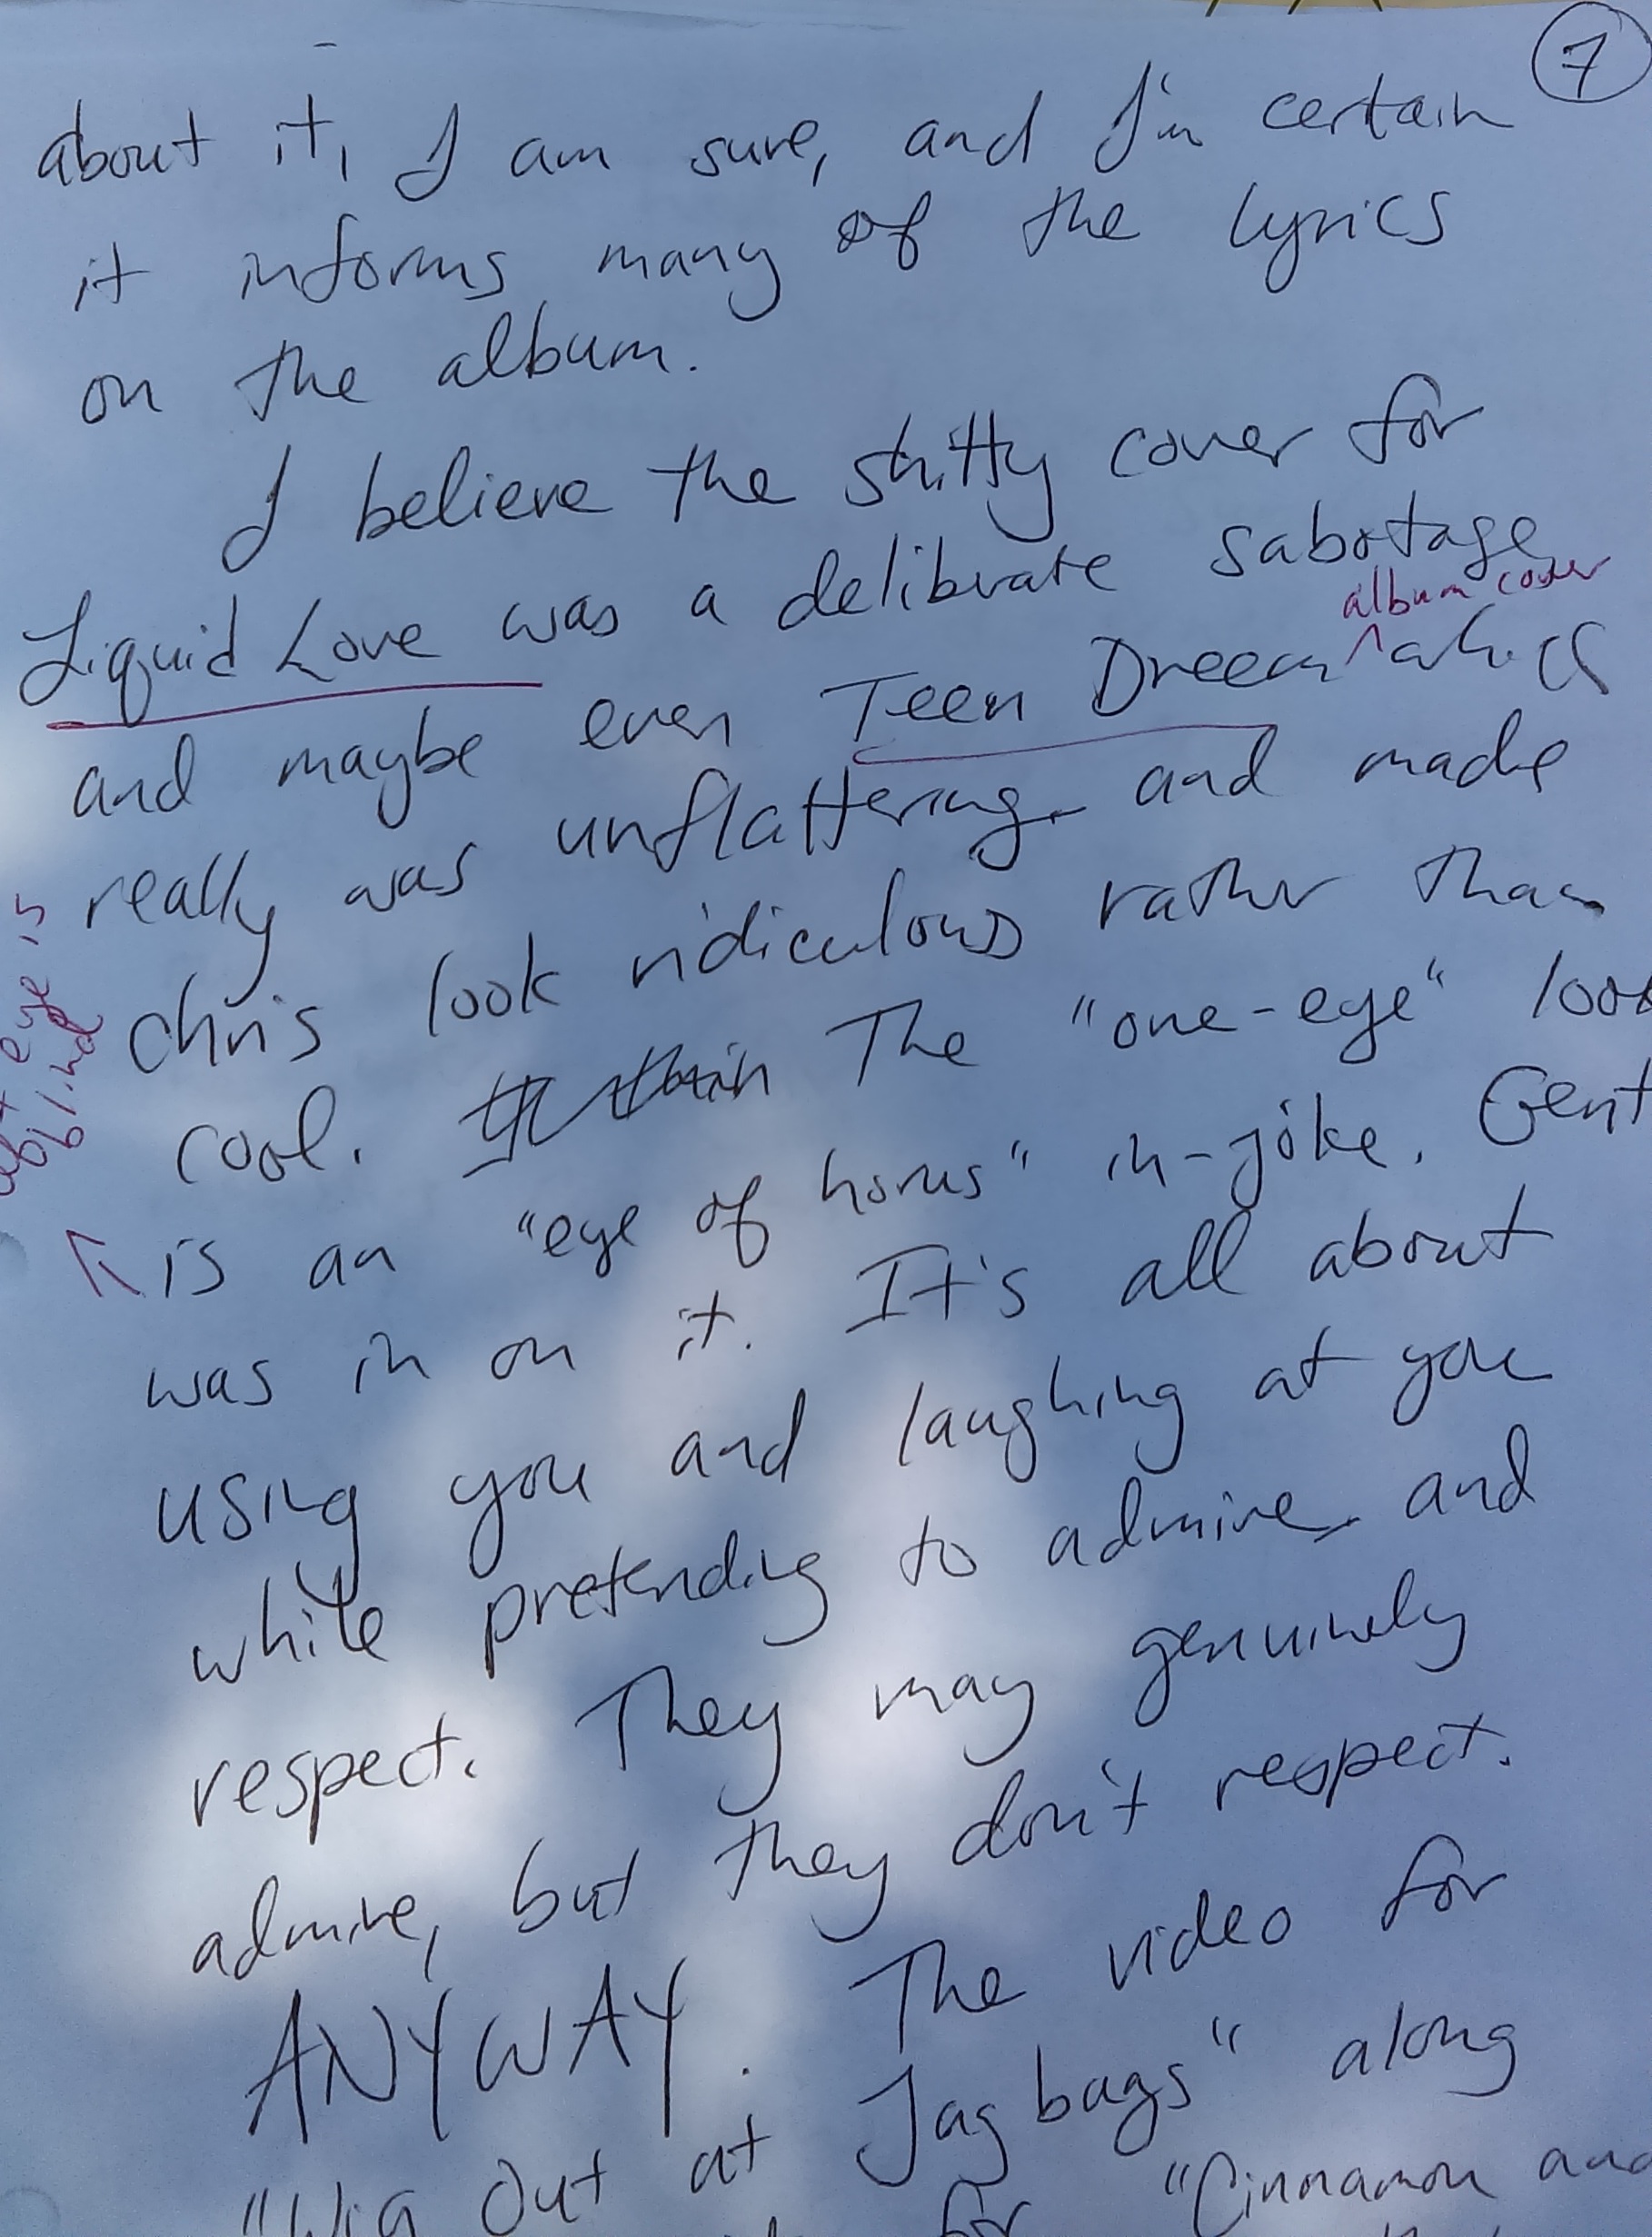 7
about it, I am sure, and I'm certain
it informs many of the lyrics
on the album.
I believe the shitty cover for
Liquid Love was a deliberate sabotage
album cover
and maybe even Teen Dreem ^ which
really was unflattering and made
eye is
blind
Chris look ridiculous rather than
cool. The "one-eye" loo
is an "eye of horus" in-joke. Gent
was in on it. It's all about
using you and laughing at you
while pretending to admire and
respect. They may genuinely
admire, but they don't respect.
ANYWAY. The video for
"Wig Out at Jag bags" along
for "Cinnamon and